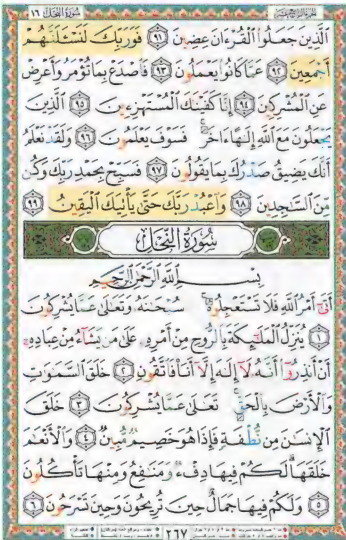 سُورَةُ النَّحْلِ ١٦
الَّذِينَ جَعَلُوا الْقُرْءَانَ عِضِينَ ٩١ فَوَرَبِّكَ لَنَسْـَٔلَنَّهُمْ
أَجْمَعِينَ ٩٢ عَمَّا كَانُوا يَعْمَلُونَ ٩٣ فَاصْدَعْ بِمَا تُؤْمَرُ وَأَعْرِضْ
عَنِ الْمُشْرِكِينَ ٩٤ إِنَّا كَفَيْنَٰكَ الْمُسْتَهْزِءِينَ ٩٥ الَّذِينَ
يَجْعَلُونَ مَعَ اللَّهِ إِلَٰهًا ءَاخَرَ فَسَوْفَ يَعْلَمُونَ ٩٦ وَلَقَدْ نَعْلَمُ
أَنَّكَ يَضِيقُ صَدْرُكَ بِمَا يَقُولُونَ ٩٧ فَسَبِّحْ بِحَمْدِ رَبِّكَ وَكُن
مِّنَ السَّٰجِدِينَ ٩٨ وَاعْبُدْ رَبَّكَ حَتَّىٰ يَأْتِيَكَ الْيَقِينُ ٩٩
سُورَةُ النَّحْلِ
بِسْمِ اللَّهِ الرَّحْمَٰنِ الرَّحِيمِ
أَتَىٰٓ أَمْرُ اللَّهِ فَلَا تَسْتَعْجِلُوهُ سُبْحَٰنَهُ وَتَعَٰلَىٰ عَمَّا يُشْرِكُونَ
١ يُنَزِّلُ الْمَلَٰٓئِكَةَ بِالرُّوحِ مِنْ أَمْرِهِ عَلَىٰ مَن يَشَآءُ مِنْ عِبَادِهِ
أَنْ أَنذِرُوٓا أَنَّهُ لَآ إِلَٰهَ إِلَّآ أَنَا فَاتَّقُونِ ٢ خَلَقَ السَّمَٰوَٰتِ
وَالْأَرْضَ بِالْحَقِّ تَعَٰلَىٰ عَمَّا يُشْرِكُونَ ٣ خَلَقَ
الْإِنسَٰنَ مِن نُّطْفَةٍ فَإِذَا هُوَ خَصِيمٌ مُّبِينٌ ٤ وَالْأَنْعَٰمَ
خَلَقَهَا لَكُمْ فِيهَا دِفْءٌ وَمَنَٰفِعُ وَمِنْهَا تَأْكُلُونَ
٥ وَلَكُمْ فِيهَا جَمَالٌ حِينَ تُرِيحُونَ وَحِينَ تَسْرَحُونَ ٦
٢٦٧